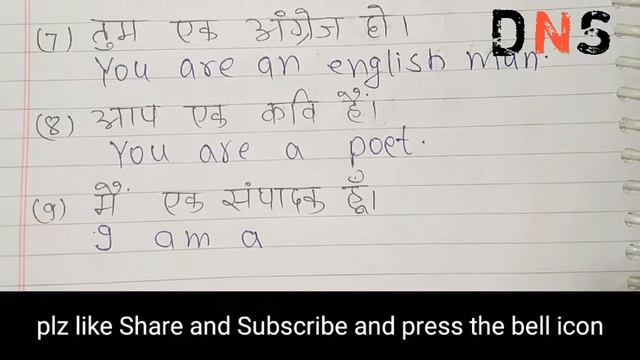 DNS
(7) तुम एक अंग्रेज हो।
You are an english man.
(8) आप एक कवि हैं।
You are a poet.
(9) मैं एक संपादक हूँ।
I am a
plz like Share and Subscribe and press the bell icon